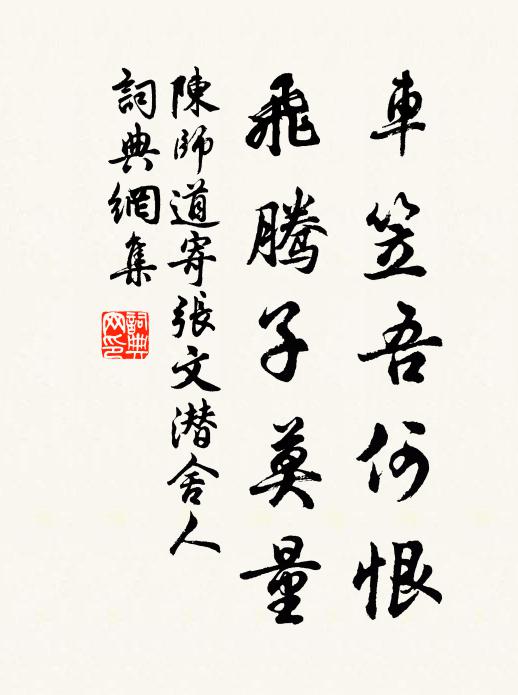 車笠吾何恨
飛騰子莫量
陳師道寄張文潛舍人
詞典網集
詞典網印